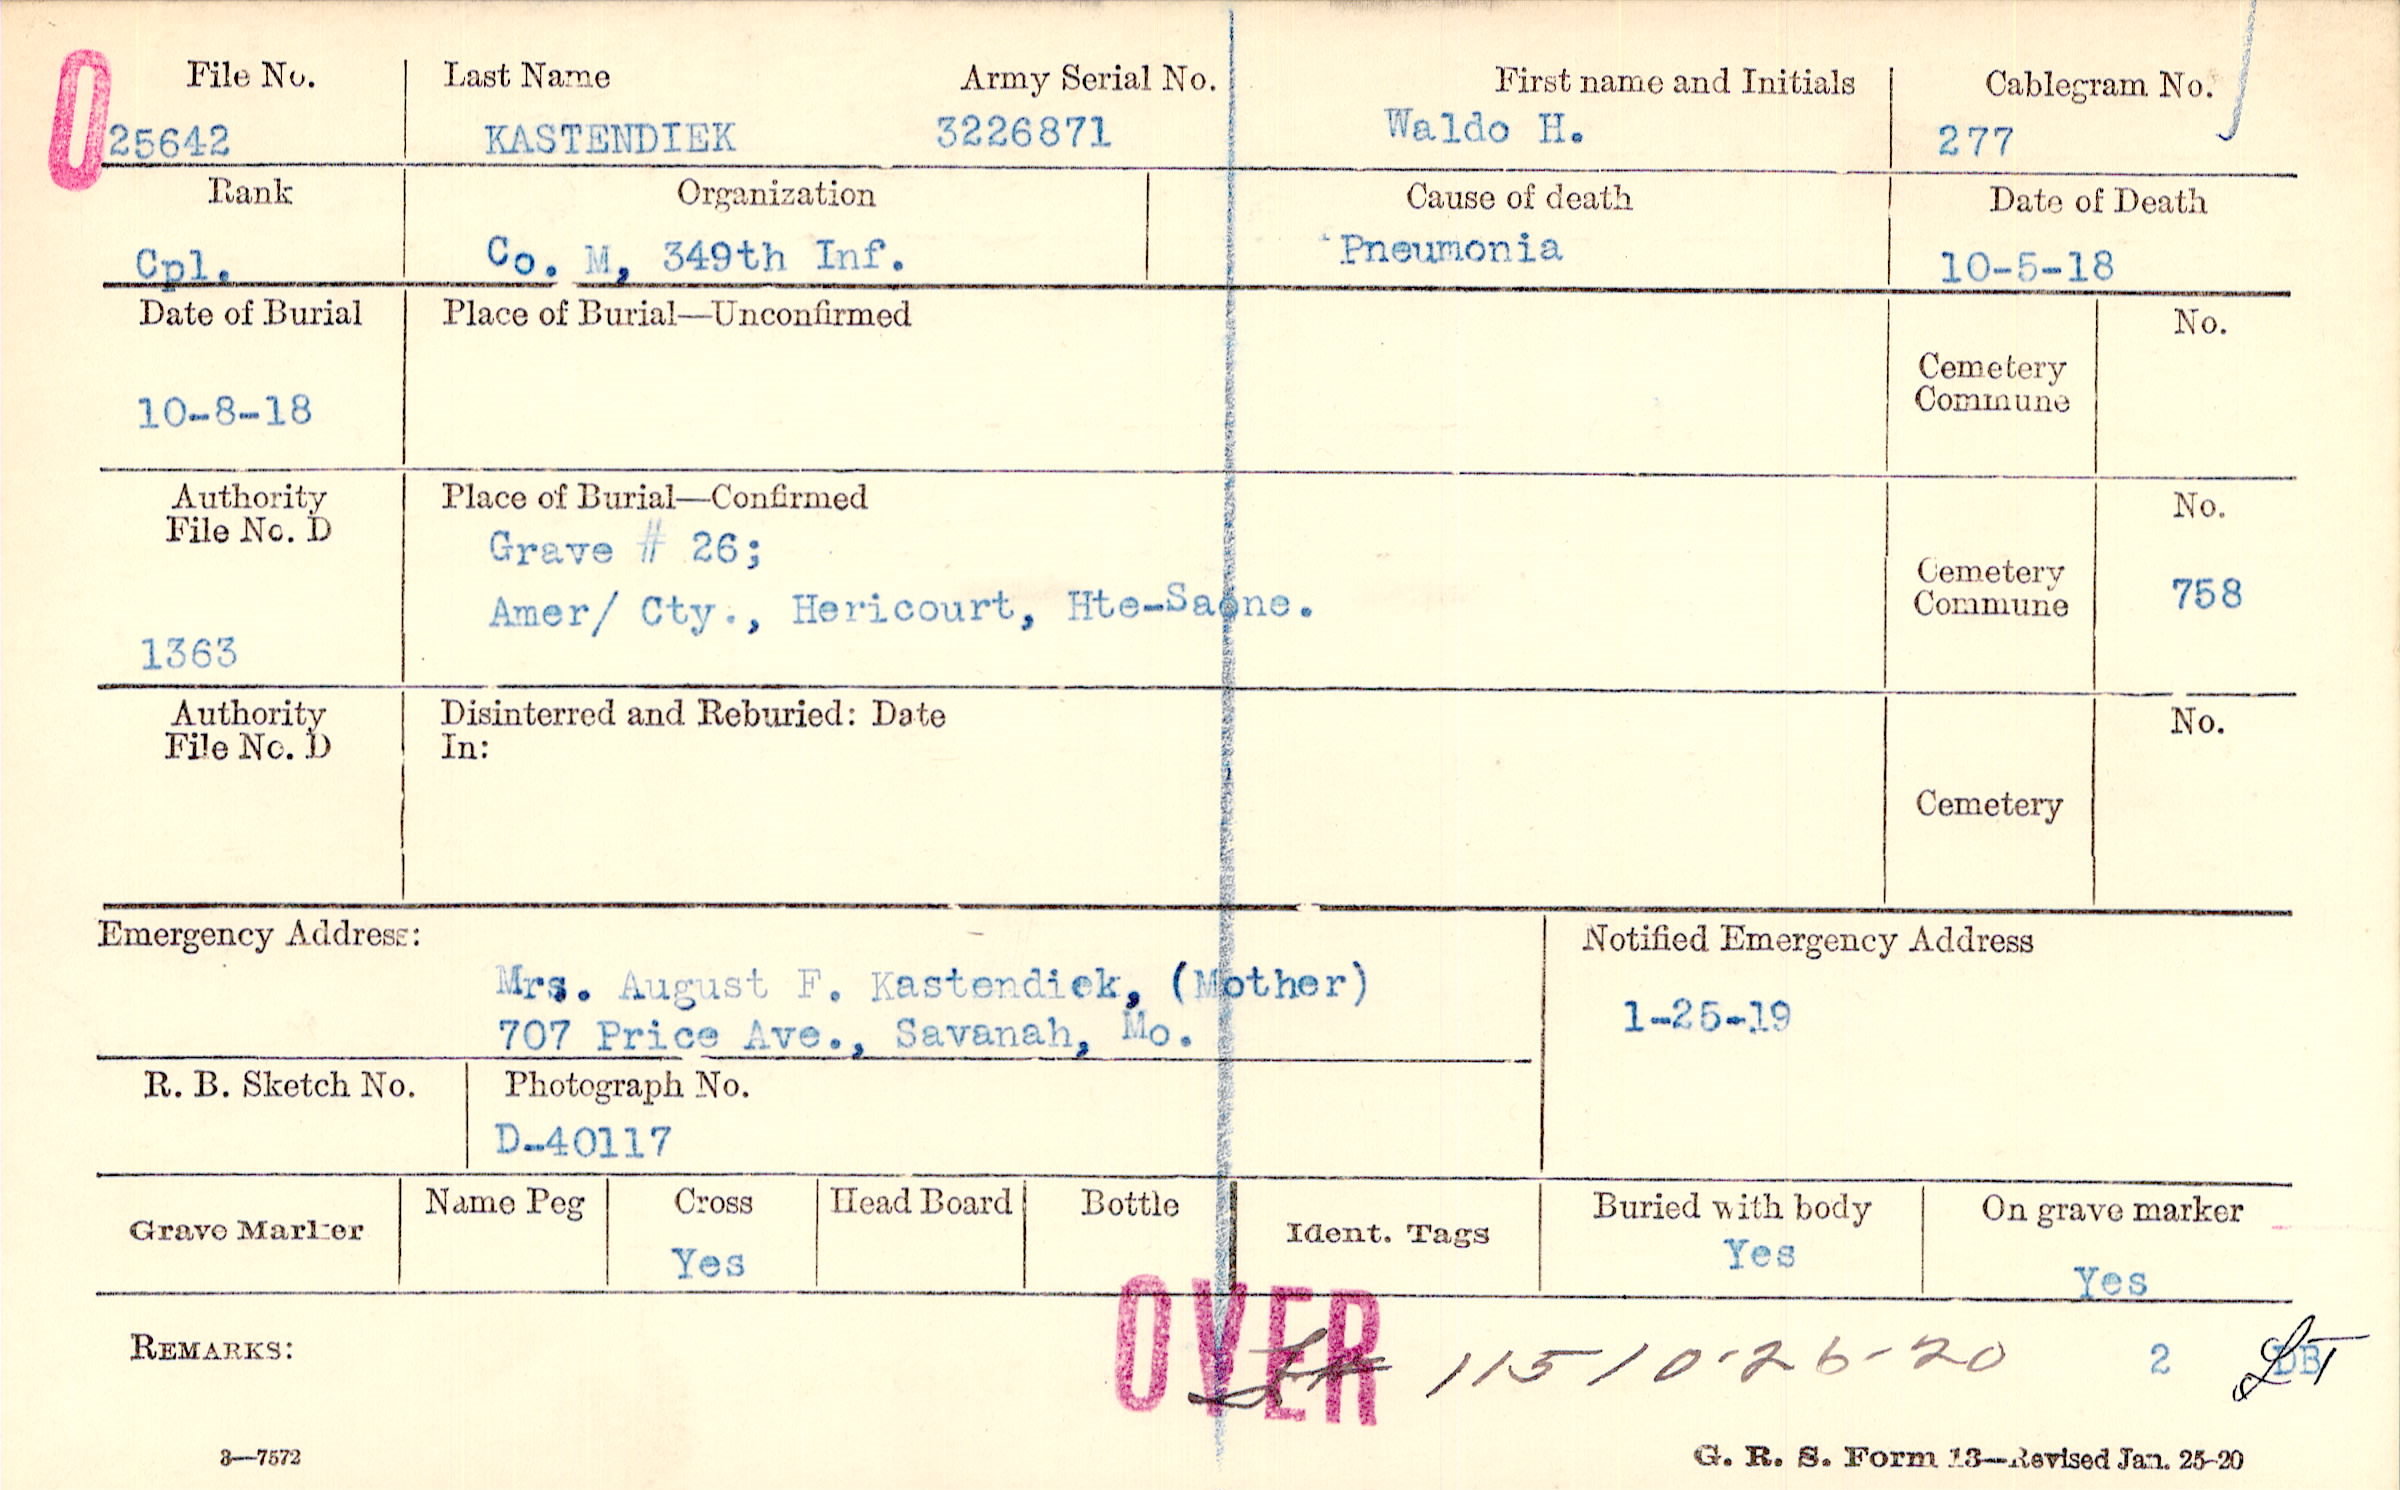 O
File No. Last Name Army Serial No. First name and Initials Cablegram No.
25642 KASTENDIEK 3226871 Waldo H. 277
Rank Organization Cause of death Date of Death
Cpl. Co. M, 349th Inf. Pneumonia 10-5-18
Date of Burial Place of Burial—Unconfirmed No.
Cemetery
Commune
10-8-18
Authority Place of Burial—Confirmed No.
File No. D
Grave # 26;
Cemetery
Commune 758
Amer/ Cty., Hericourt, Hte-Saone.
1363
Authority Disinterred and Reburied: Date No.
File No. D In:
Cemetery
Emergency Address: Notified Emergency Address
Mrs. August F. Kastendiek, (Mother)
1-25-19
707 Price Ave., Savanah, Mo.
R. B. Sketch No. Photograph No.
D-40117
Grave Marker Name Peg Cross Head Board Bottle Ident. Tags Buried with body On grave marker
Yes Yes Yes
OVER
REMARKS: 115 10-26-20 2 DB
3—7572 G. R. S. Form 13—Revised Jan. 25-20